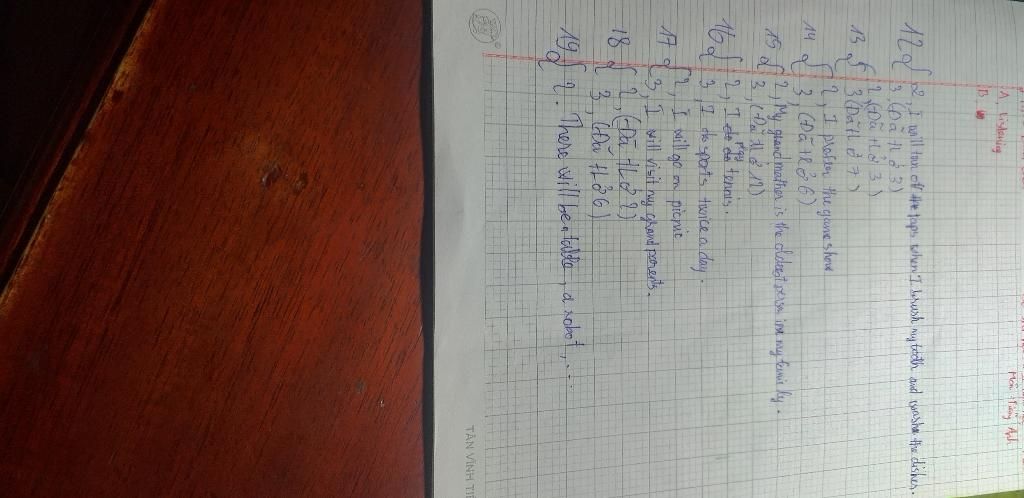 Môn: Tiếng Anh
A, Listening
B,
12 2, I will turn off the taps when I brush my teeth and washs the dishes.
3 (Đã TL ở 3)
13 2 (Đã TL ở 3)
3 (Đã TL ở 7)
14 2, I prefer the game show
3, (Đã TL ở 6)
15 2, My grand mother is the oldest person in my family.
3, (Đã TL ở 12)
16 2, I play tennis.
3, I do sports twice a day.
17 2, I will go on picnic
3, I will visit my grand parents.
18 2, (Đã TL ở 2)
3, (Đã TL ở 6)
19 2. There will be a table, a robot, ...
TÂN VĨNH TIẾ